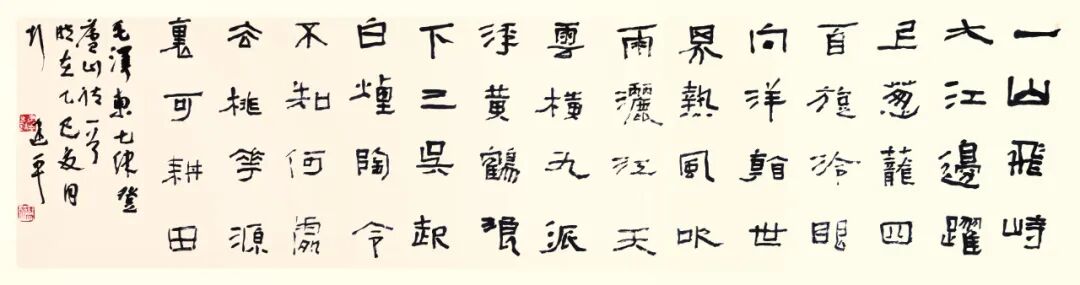 一山飛峙
大江邊躍
上葱蘢四
百旋冷眼
向洋看世
界熱風吹
雨灑江天
雲橫九派
浮黃鶴浪
下三吳起
白煙陶令
不知何處
去桃花源
裏可耕田
毛澤東七律登
廬山詩一首
時在乙巳夏月
建平